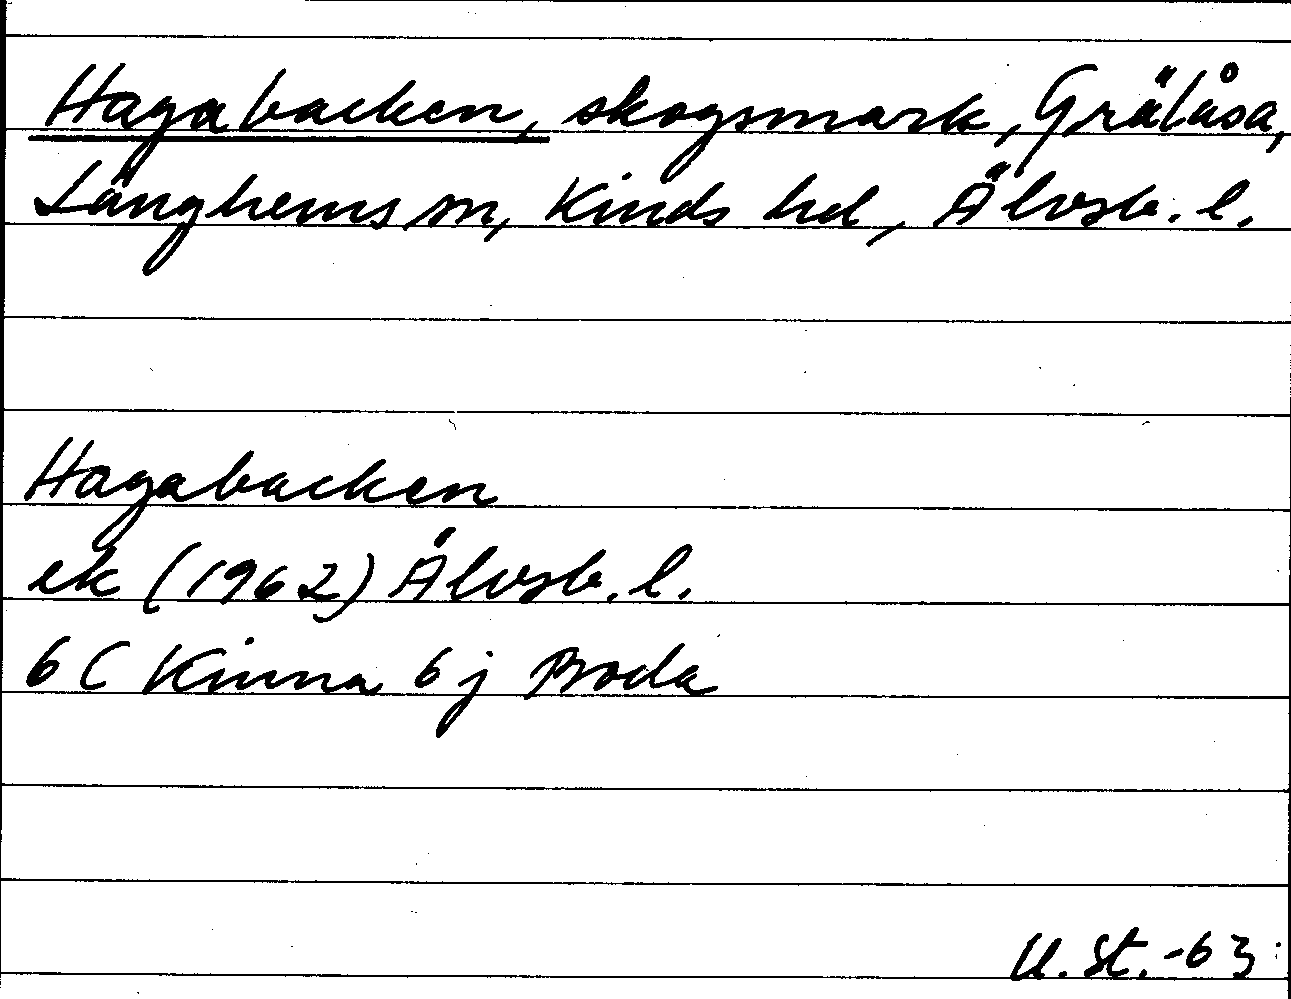 Hagabacken, skogsmark, Grälåsa,
Länghems sn, Kinds hd, Älvsb. l.
Hagabacken
ek (1962) Älvsb. l.
6 C Kinna 6 j Broda
U. St. -63